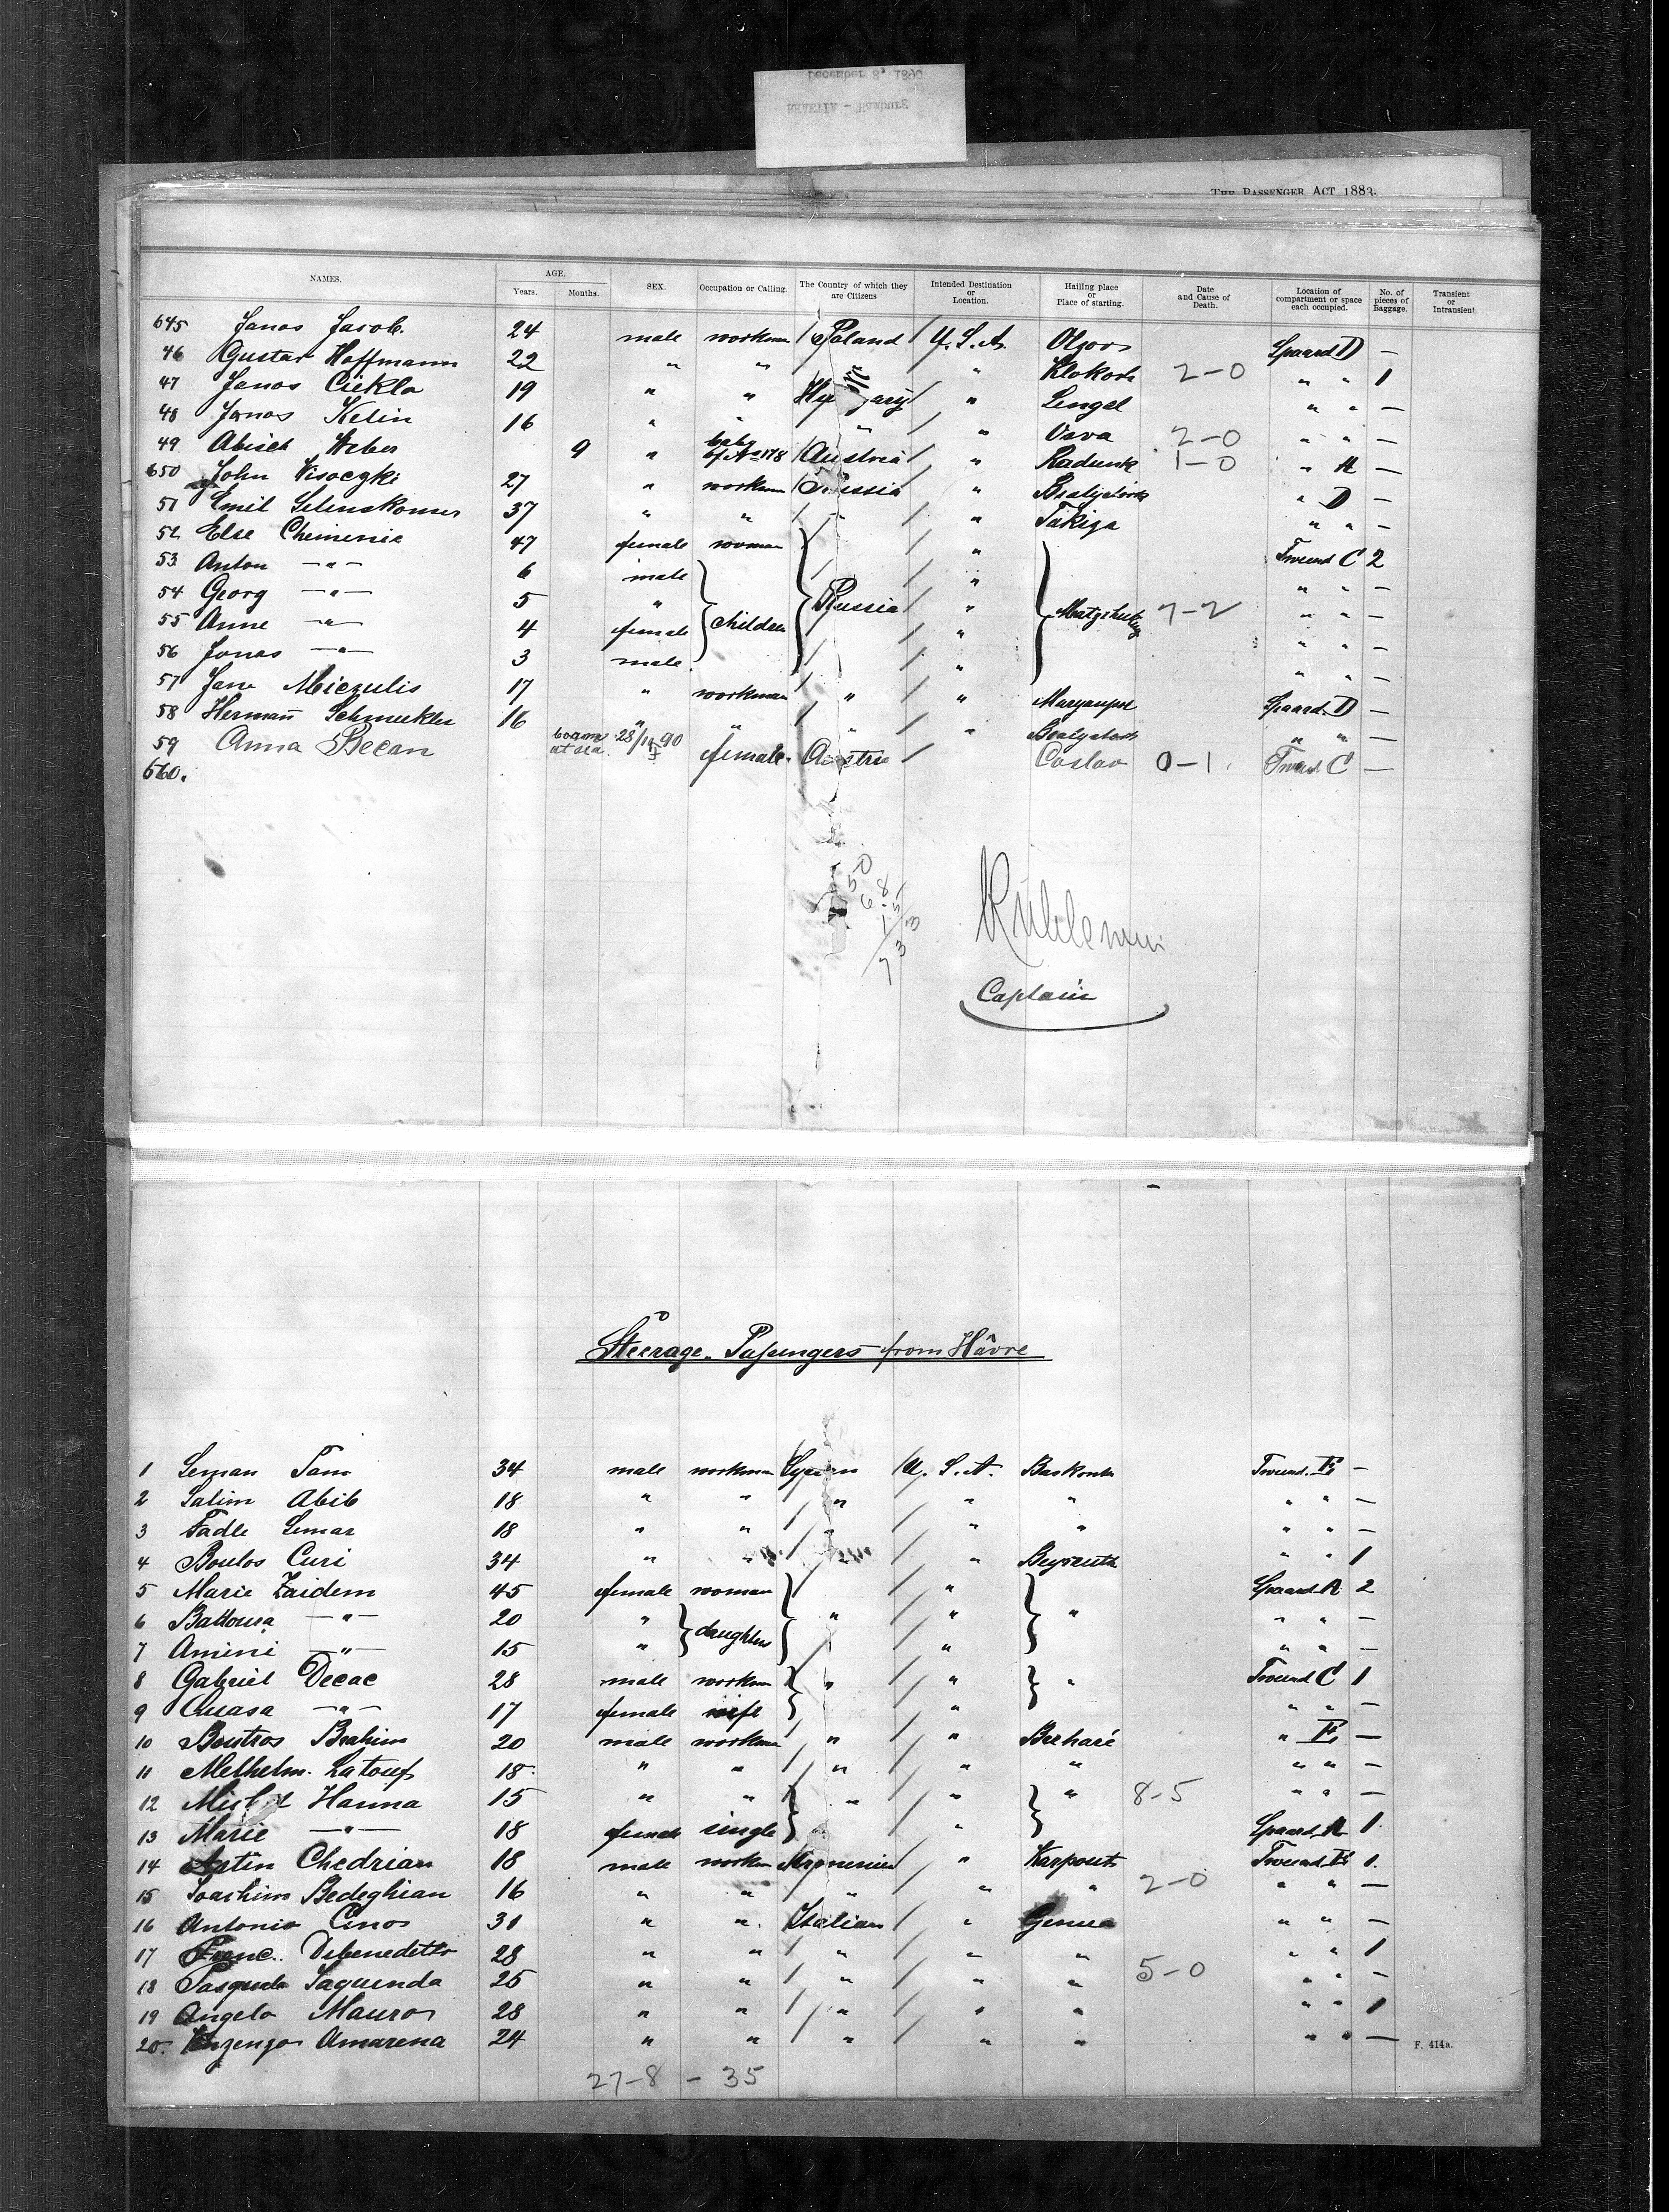 December 8, 1890
RHAETIA - Hamburg
THE PASSENGER ACT 1883.
NAMES. AGE. Years. Months. SEX. Occupation or Calling. The Country of which they are Citizens Intended Destination or Location. Hailing place or Place of starting. Date and Cause of Death. Location of compartment or space each occupied. No. of pieces of Baggage. Transient or Intransient
645 Janos Jacob. 24 male workman Poland U. S. A. Spaard D —
46 Gustav Hoffmann 22 " " " Klokoch 2-0 " " 1
47 Janos Cükla 19 " " Hungary " Lengel " " —
48 Janos Kelin 16 " " " " Orva 2-0 " " —
49 Abisch Weber 9 " baby of No 178 Austria " Radunk 1-0 " A —
650 John Visoczki 27 " workman Russia " " D —
51 Emil 37 " " " " Takiga " " —
52 Else Cheminia 47 female woman " Tweend C 2
53 Anton —"— 6 male " " " —
54 Georg —"— 5 " children Russia " 7-2 " " —
55 Anne —"— 4 female " " " —
56 Jonas —"— 3 male " " " —
57 Jane Miczulis 17 " workman " " Spaard. D —
58 Hermañ Schmuckler 16 " " " " " " —
59 Anna Becan born at sea 28/11 90 female. Austria Caslav 0-1. Tweend. C —
660.
50
6.8
15
733
Captain
Steerage-Passengers from Hâvre
1 Leman Tam 34 male workman Syrian U. S. A. Tweend. E —
2 Salim Abib 18 " " " " " " " —
3 Fadle Lemar 18 " " " " " " " —
4 Boulos Curi 34 " " " " Beyrouth " " 1
5 Marie Zaidem 45 female woman " Spaard A 2
6 —"— 20 " daughters " " " " " —
7 Amini —"— 15 " " " " —
8 Gabriel Decac 28 male workman " " " Tweend C 1
9 —"— 17 female wife " " " —
10 Boutros Brahim 20 male workman " " Berharé " E —
11 Methelm. Latouf 18 " " " " " " " —
12 Hanna 15 " " " " " 8-5 " " —
13 Marie —"— 18 female single " Spaard. A 1
14 Artin Chedrian 18 male workm Armenien " Karpout Tweend E 1.
15 Joachim Bedeghian 16 " " " " " 2-0 " " —
16 Antonio Cinos 31 " " Italian " Genua " " —
17 Franc. Debenedetto 28 " " " " " " " 1
18 Pasquale Taquenda 25 " " " " " 5-0 " " —
19 Angelo Mauro 28 " " " " " " " 1
20. Amarena 24 " " " " " " " —
F. 414a.
27-8 - 35